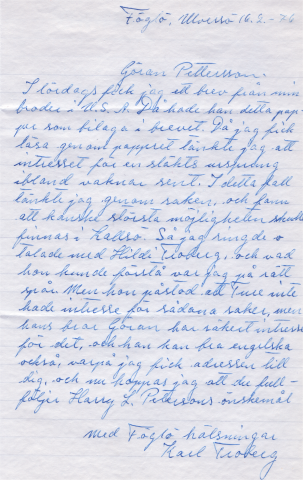 Föglö, Ulversö 16.2.-76
Göran Pettersson.
I lördags fick jag ett brev från min
broder i U.S.A. Då hade han detta pap-
per som bilaga i brevet. Då jag fick
läsa genom pappret tänkte jag att
intresset för en släkts ursprung
ibland vaknar sent. I detta fall
tänkte jag genom saken, och fann
att kanske största möjligheten skulle
finnas i Kallsö. Så jag ringde o
talade med Hilda Troberg, och vad
hon kunde förstå var jag på rätt
spår. Men hon påstod att Ture inte
hade intresse för sådana saker, men
hans bror Göran har säkert intresse
för det, och han kan bra engelska
också, varpå jag fick adressen till
dig, och nu hoppas jag att du full-
följer Harry L. Pettersons önskemål
med Föglö hälsningar
Karl Troberg